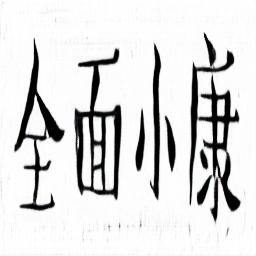 全面小康